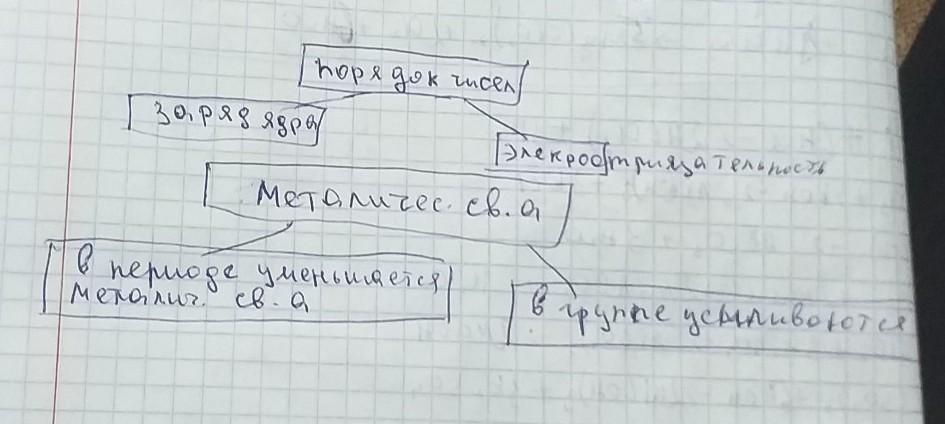 порядок чисел
заряд ядра
элекроотрицательность
металичес. св. а
в периоде уменьшается
металич. св. а
в группе усыливоются